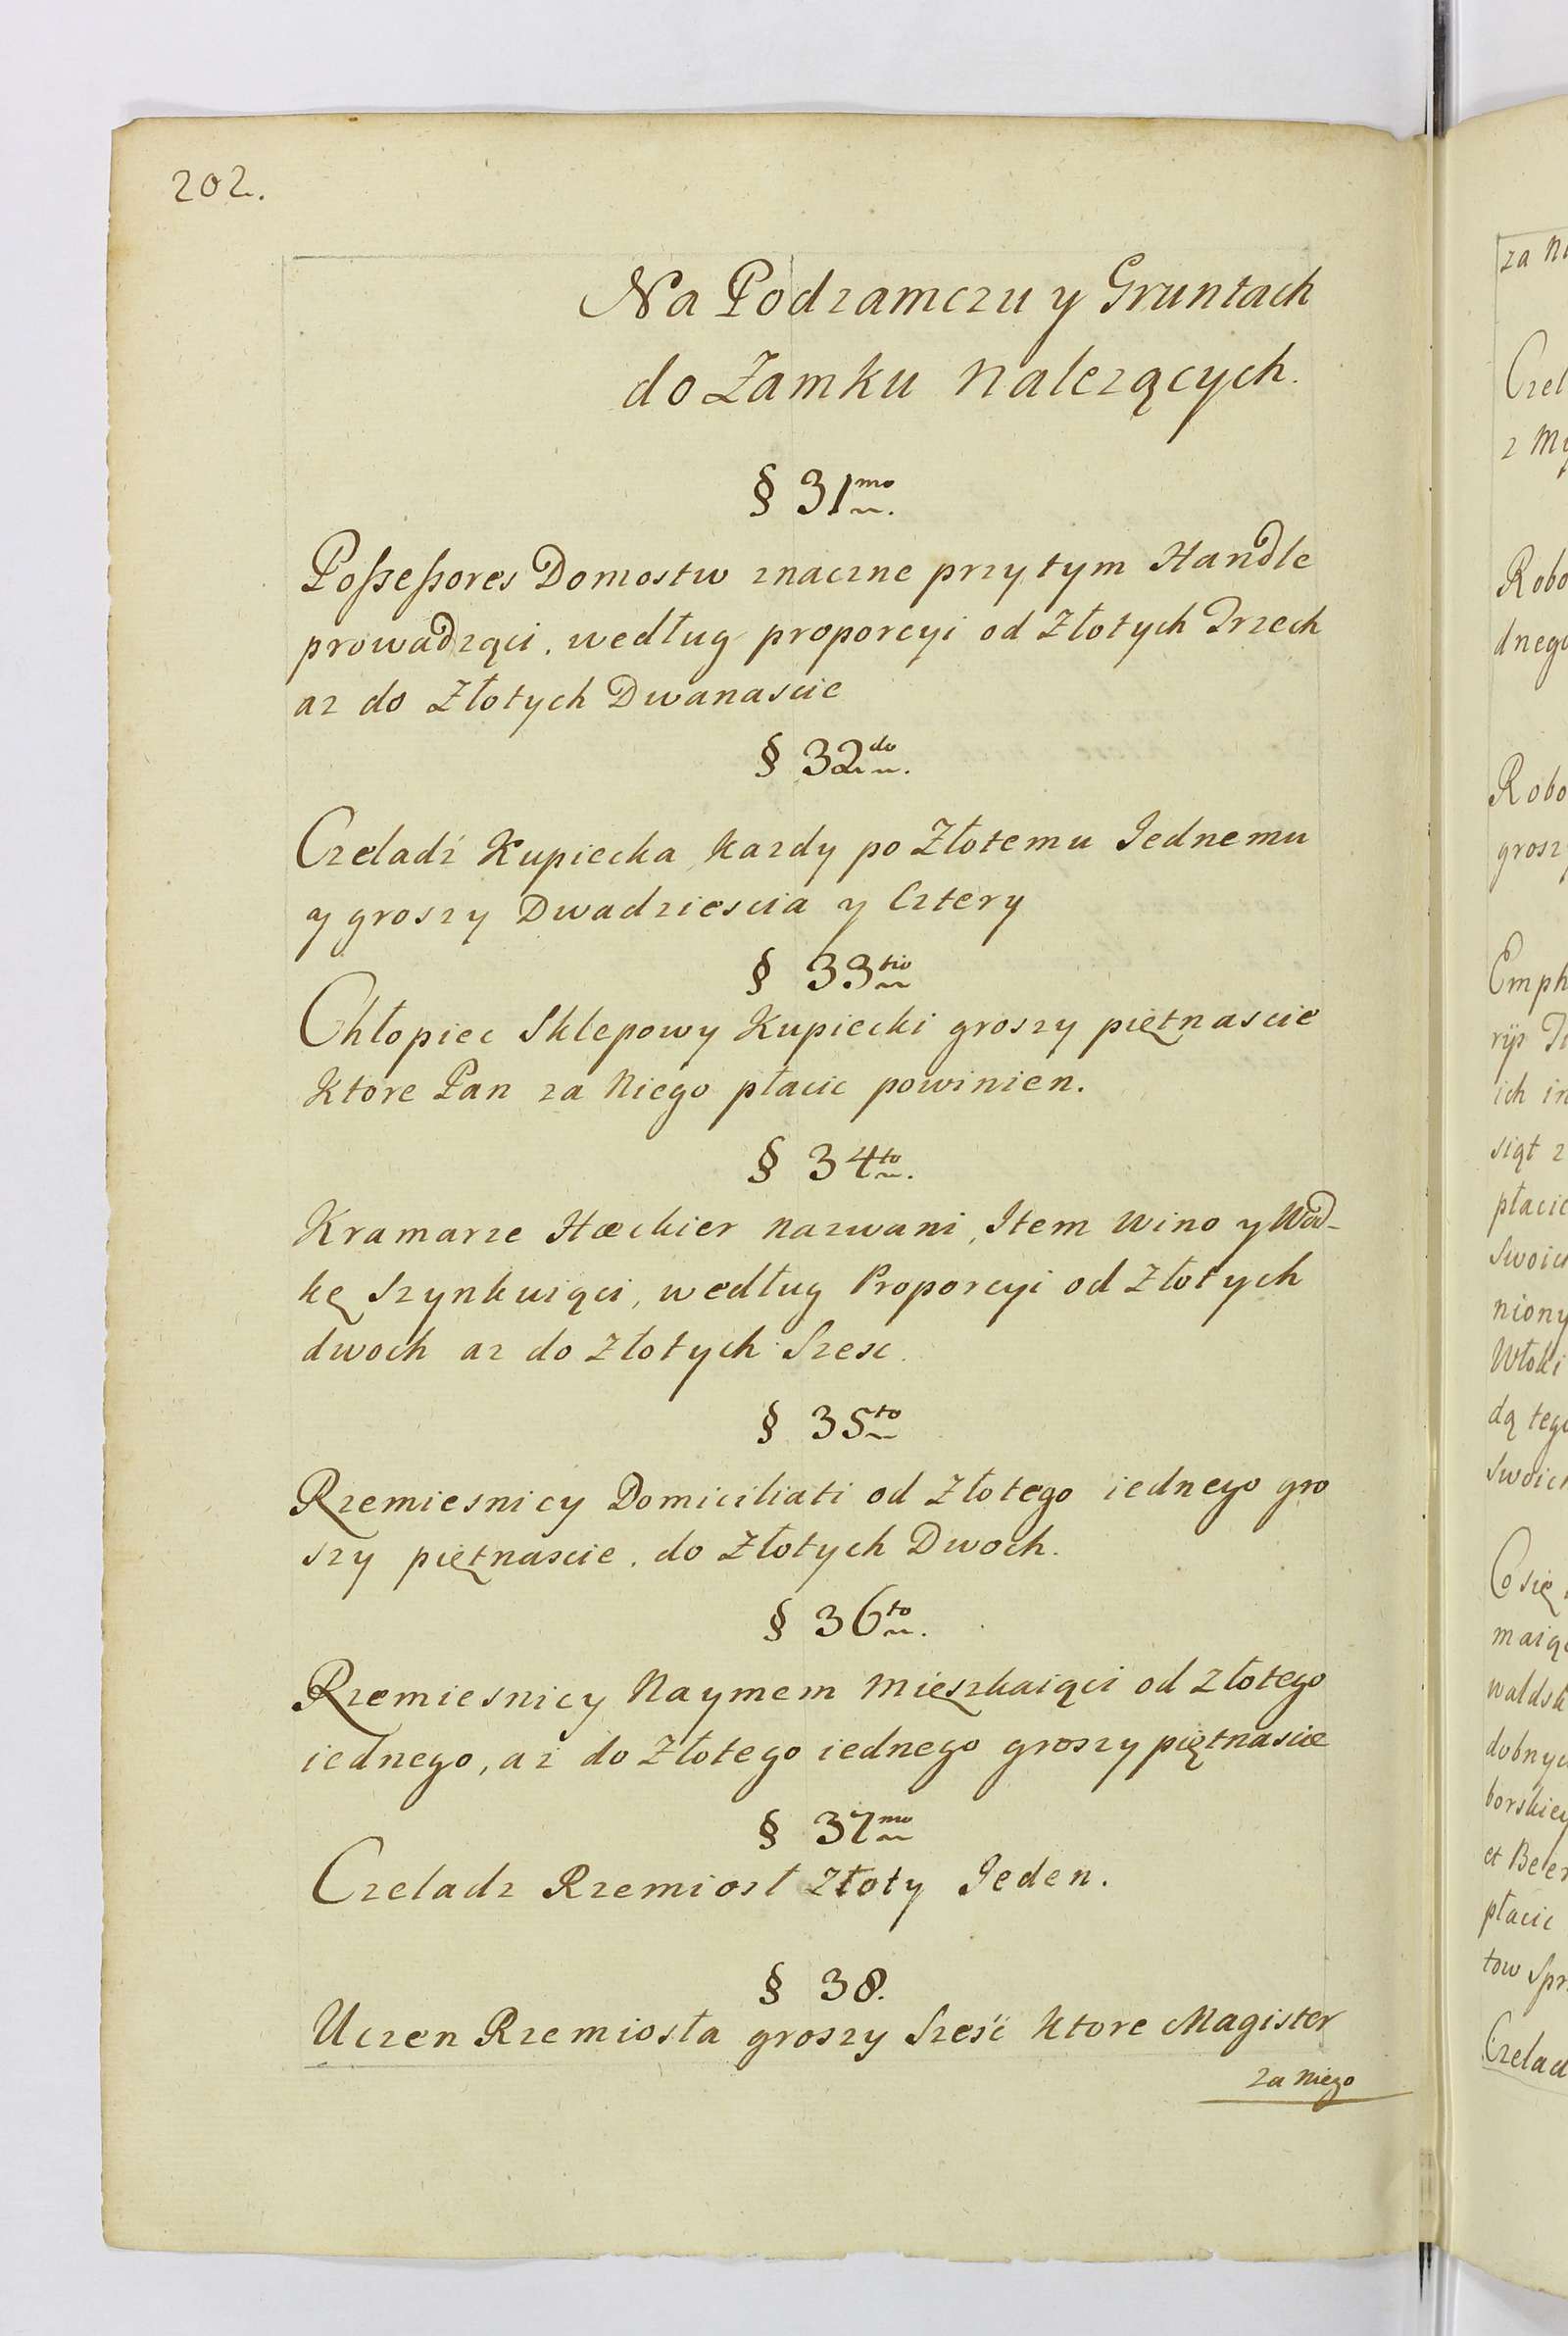 202.
Na Podzamczu y Gruntach
do Zamku nalezących.
§ 31mo.
Poßeßores Domostw znaczne przytym Handle
prowadzący. według proporcyi od Złotych Trzech
az do Złotych Dwanascie
§ 32do.
Czeladź Kupiecka, kazdy po Złotemu Iednemu
y groszy Dwadziescia y Cztery
§ 33tio
Chłopiec Sklepowy Kupiecki groszy piętnascie
Ktore Pan za Niego płacic powinien.
§ 34to.
Kramarze Hæckier nazwani, Item wino y Wod-
kę Szynkuiąci, według Proporcyi od Złotych
dwoch az do Złotych Szesc.
§ 35to
Rzemiesnicy Domiciliati od Złotego iednego gro
szy piętnascie. do Złotych Dwoch.
§ 36to.
Rzemiesnicy Naymem mieszkaiąci od Złotego
iednego, aż do Złotego iednego groszy piętnascie
§ 37mo
Czeladz Rzemiosł Złoty Ieden.
§ 38.
Uczen Rzemiosła groszy Sześć ktore Magister
za niego
za
Czel
z
Robo
dnego
Robo
grosz
Emph
ich
siąt z
płacic
Swoich
niony
Włoki
dą tego
Swoich
Co się
maiąc
waldsk
dobnyc
borskiey
et Beer
płacic
tow Spr
Czelad